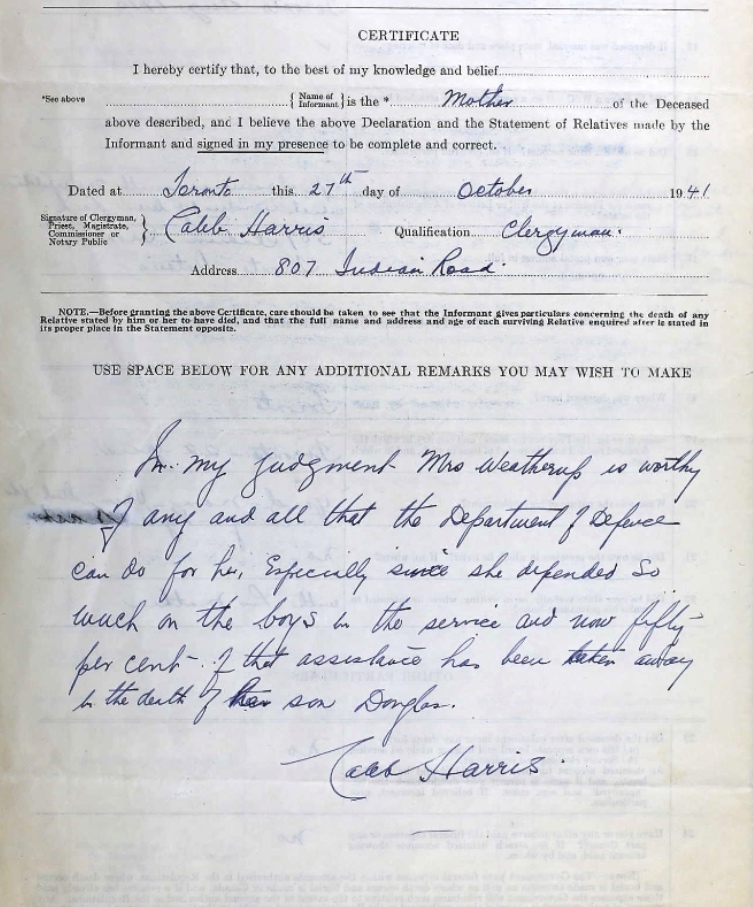 CERTIFICATE
I hereby certify that, to the best of my knowledge and belief
*See above { Name of Informant } is the * Mother of the Deceased
above described, and I believe the above Declaration and the Statement of Relatives made by the
Informant and signed in my presence to be complete and correct.
Dated at Toronto this 27th day of October 1941
Signature of Clergyman, Priest, Magistrate, Commissioner or Notary Public } Caleb Harris Qualification Clergyman.
Address 807 Indian Road.
NOTE.—Before granting the above Certificate, care should be taken to see that the Informant gives particulars concerning the death of any
Relative stated by him or her to have died, and that the full name and address and age of each surviving Relative enquired after is stated in
its proper place in the Statement opposite.
USE SPACE BELOW FOR ANY ADDITIONAL REMARKS YOU MAY WISH TO MAKE
In my judgment Mrs Weatherup is worthy
of any and all that the Department of Defence
can do for her, Especially since she depended so
much on the boys in the service and now fifty
per cent of that assistance has been taken away
in the death of her son Douglas.
Caleb Harris.